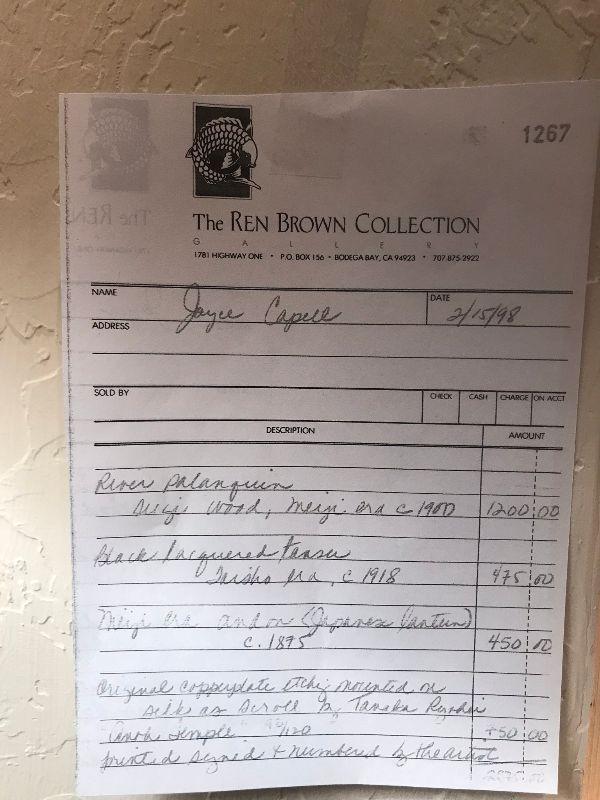 1267
The REN BROWN COLLECTION
G A L L E R Y
1781 HIGHWAY ONE • P.O. BOX 156 • BODEGA BAY, CA 94923 • 707-875-2922
NAME Joyce Capell DATE 2/15/98
ADDRESS
SOLD BY CHECK CASH CHARGE ON ACCT
DESCRIPTION AMOUNT
River Palanquin
wood, Meiji era c 1900 1200.00
Black Lacquered Tansu
Taisho era, c 1918 475.00
Meiji era andon (Japanese lantern)
c. 1875 450.00
Original copperplate etching mounted on
silk as scroll by Tanaka Ryohei
Temple" 95/120 750.00
printed signed & numbered by the artist